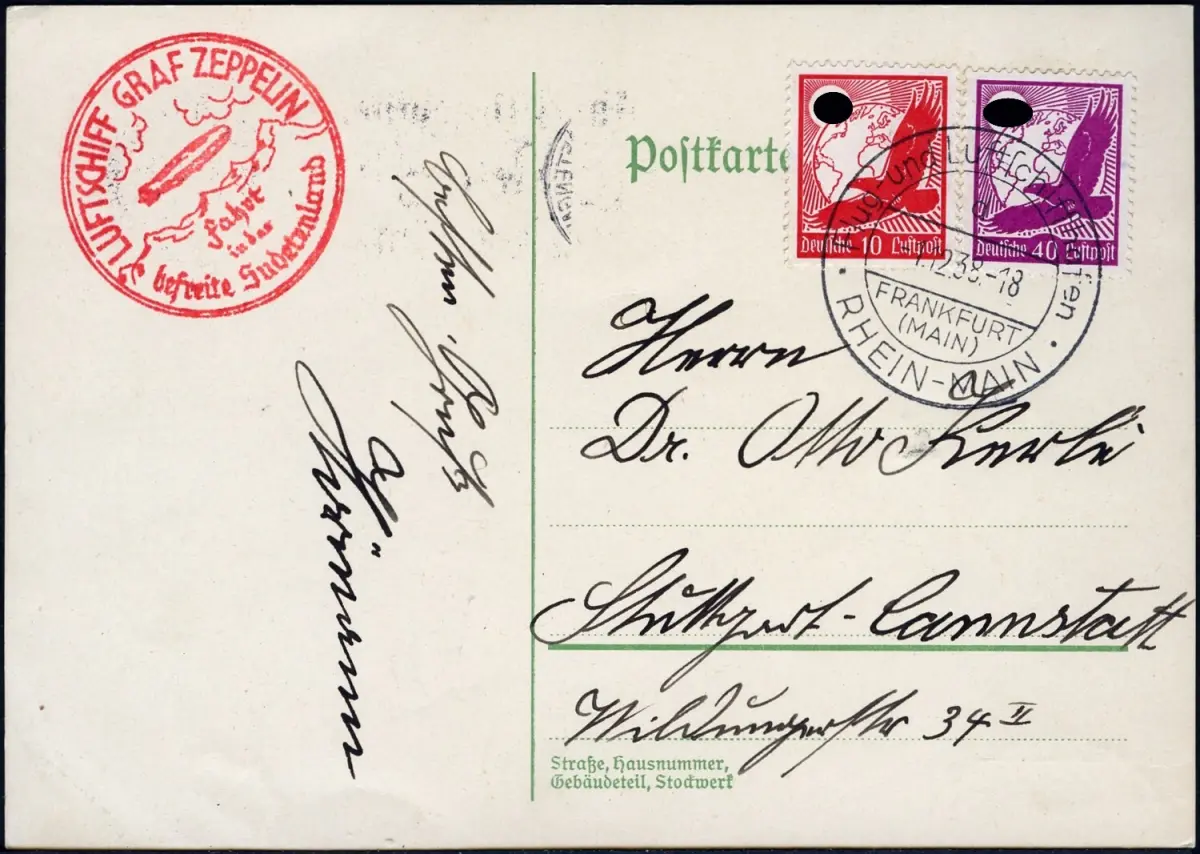 LUFTSCHIFF GRAF ZEPPELIN
Fahrt
in der
befreite Sudetenland
Postkarte
Deutsche 10 Luftpost
Deutsche 40 Luftpost
Flug- und Luftschiffhafen
d
1.12.38.-18
FRANKFURT
(MAIN)
RHEIN-MAIN
Herrn
Dr. Otto
Stuttgart-Cannstatt
Wildungerstr 34 II
Straße, Hausnummer,
Gebäudeteil, Stockwerk